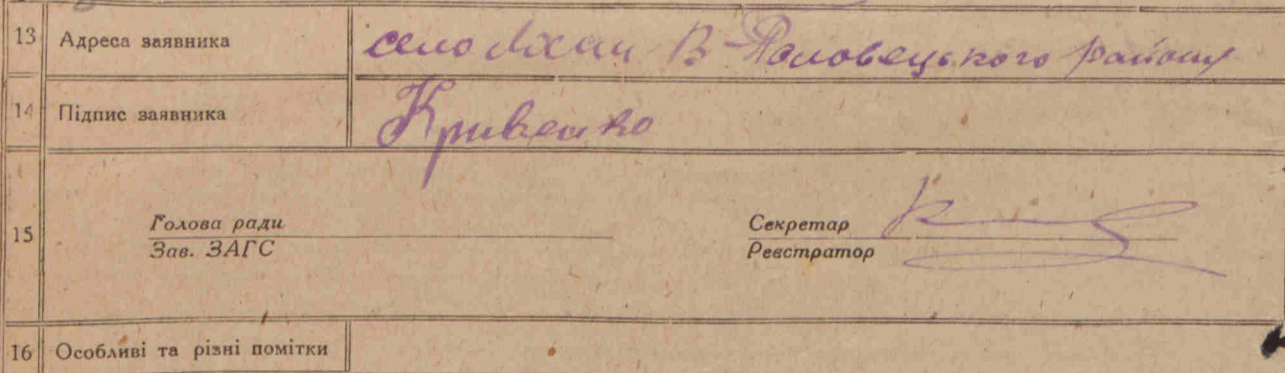 13 Адреса заявника село В-Половецького району
14 Підпис заявника Кривенко
15
Голова ради
Зав. ЗАГС
Секретар
Реєстратор
16 Особливі та різні помітки